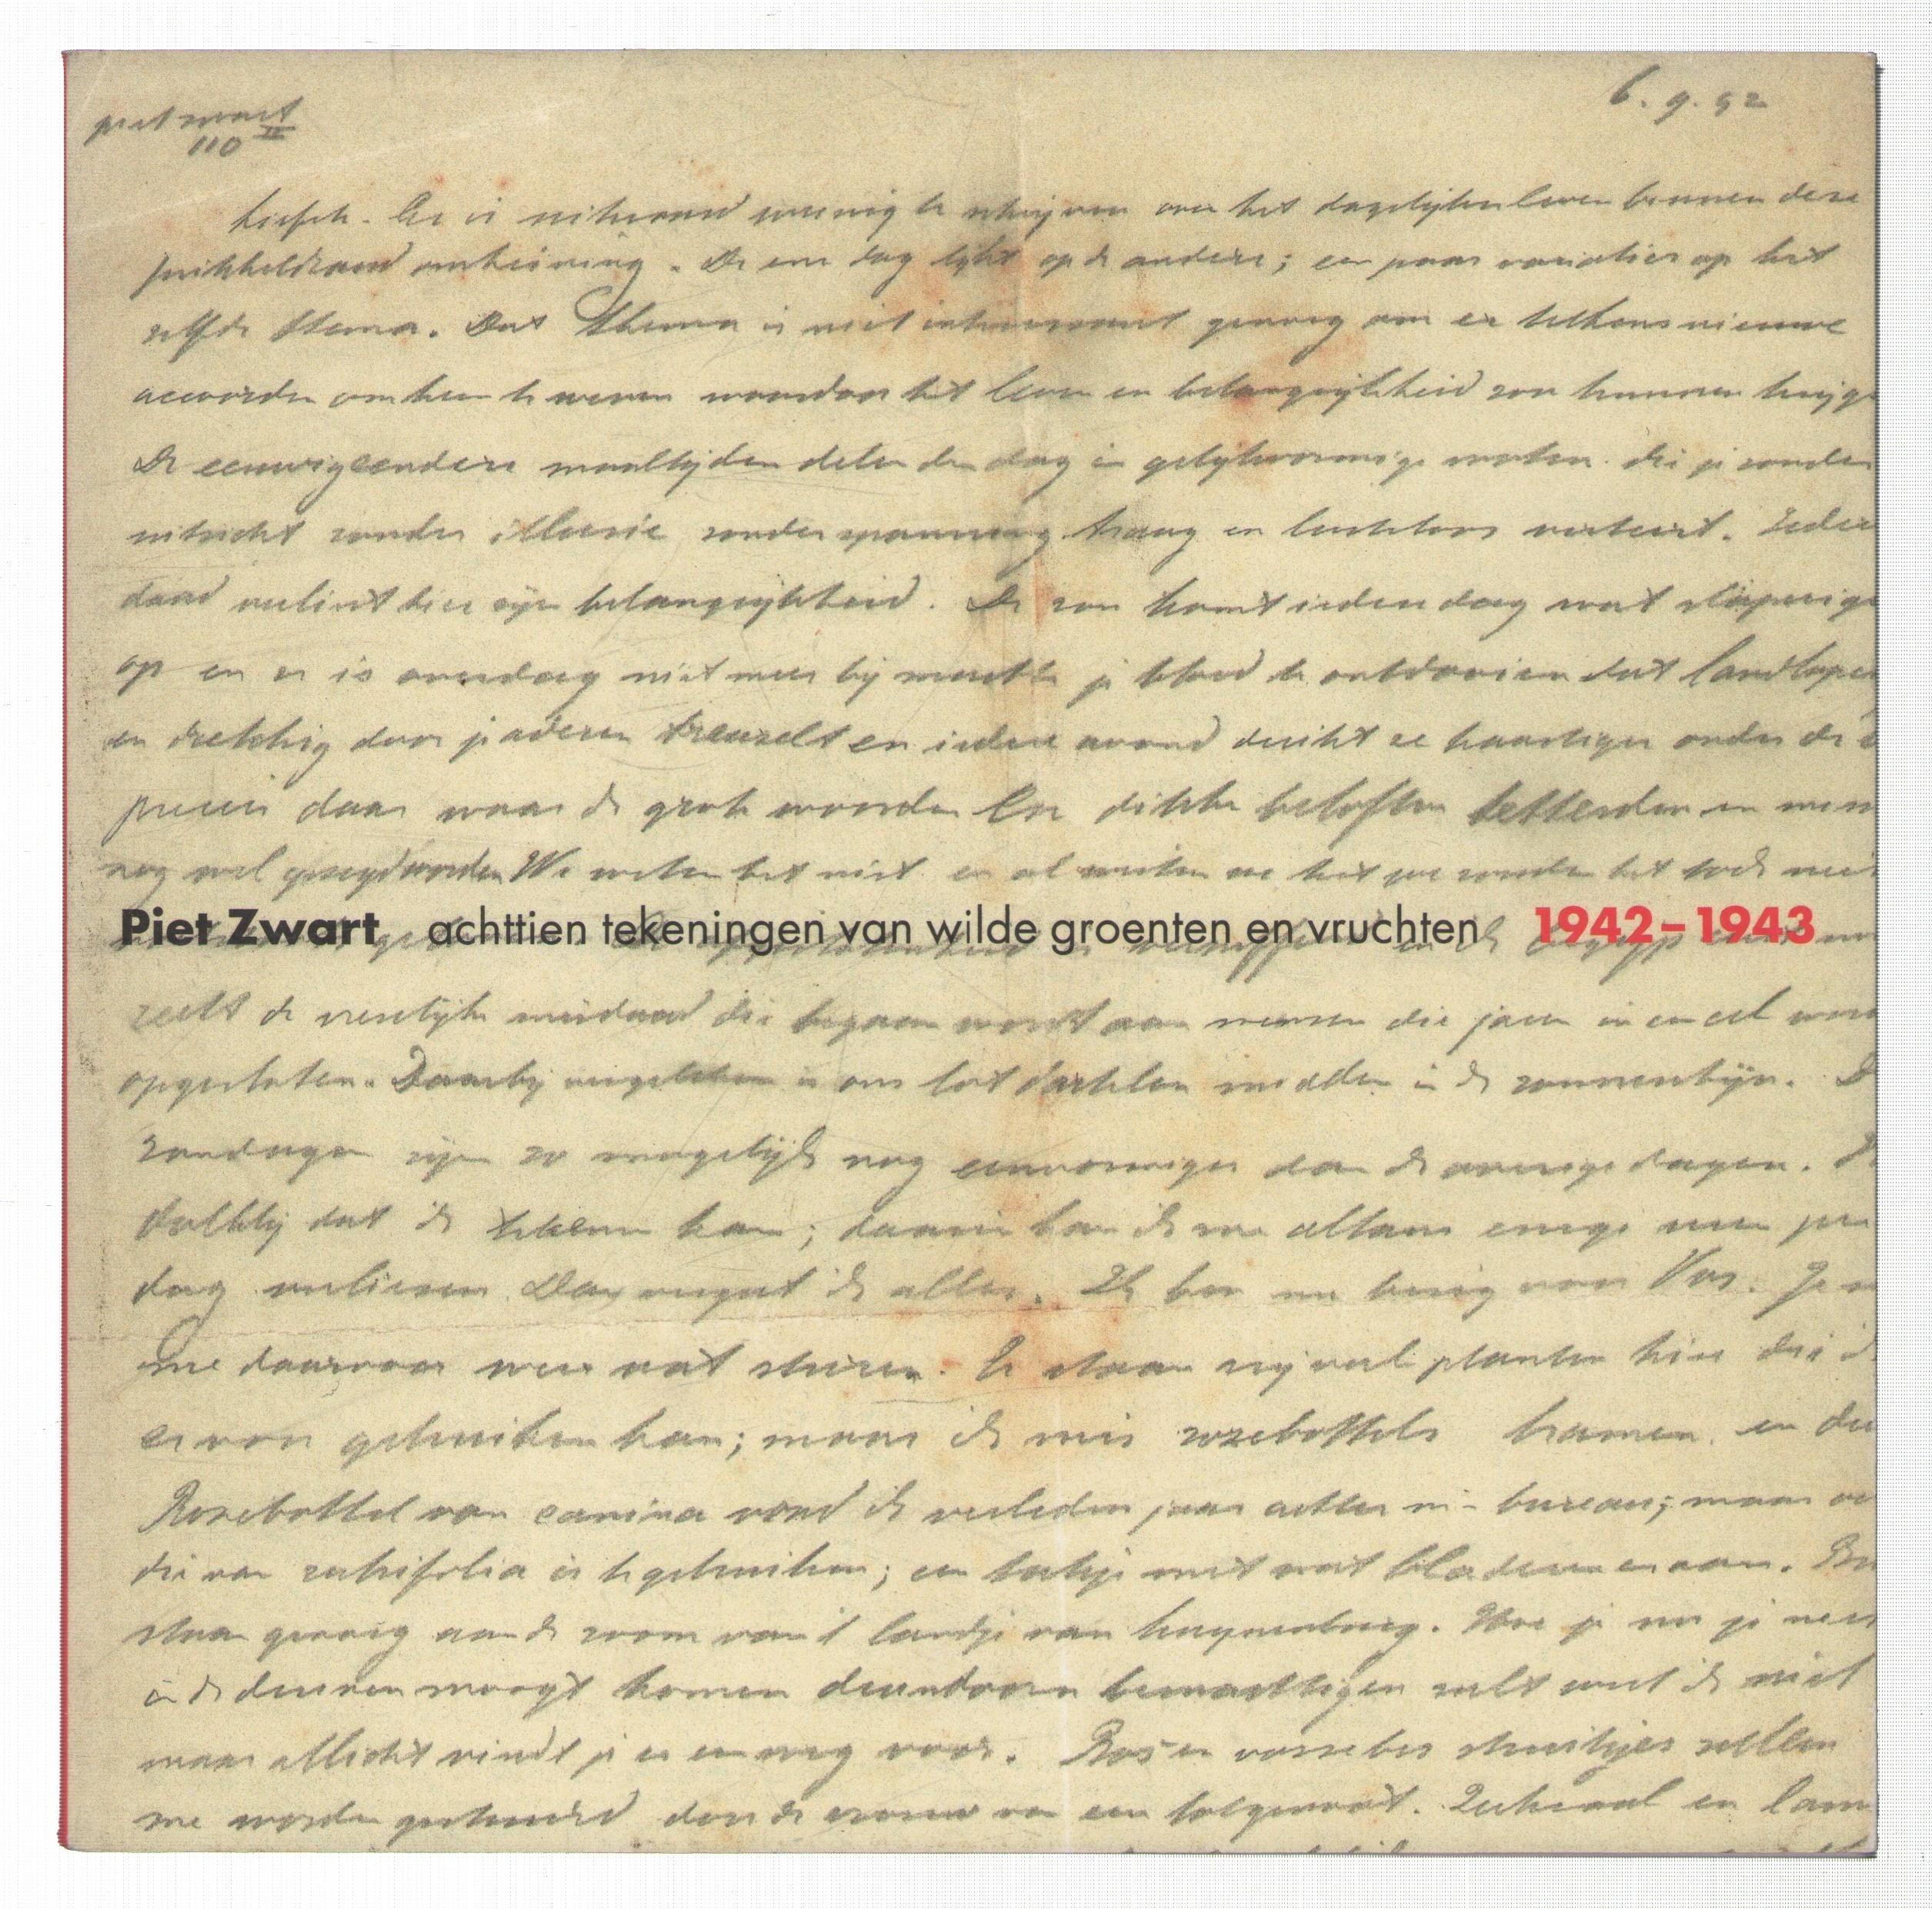 piet zwart
110 IV
6.9.42
Liefste. Er is uiteraard weinig te schrijven over het dagelijksche leven binnen deze
prikkeldraad omheining. De eene dag lijkt op de andere; een paar variaties op het
zelfde thema. Dat thema is niet interessant genoeg om er telkens nieuwe
accoorden omheen te weven waardoor het leven en belangrijkheid zou kunnen krijge
De eeuwigeendere maaltijden delen den dag in gelijkvormige moten die je zonder
uitzicht zonder illusie zonder spanning traag en lusteloos verteert. Iedere
daad verliest hier zijn belangrijkheid. De zon komt iedere dag wat slaperige
op en er is overdag niet meer bij machte je bloed te ontdooien dat landloper
en drekkig door je aderen treuzelt en iedere avond duikt ze haastiger onder de
precies daar waar de grote woorden en dikke beloften tetterden en
nog wel gezegd worden We weten het niet en al weten we het we zouden het toch niet
Piet Zwart achttien tekeningen van wilde groenten en vruchten 1942–1943
zeelt de vreselijke misdaad die begaan wordt aan mensen die jaren in een cel
opgesloten. Daarbij vergeleken is ons lot dartelen midden in de zonneschijn. D
zondagen zijn zo mogelijk nog eenvormiger dan de overige dagen.
dolblij dat ik tekenen kan; daarin kan ik me althans enige uren per
dag verliezen. Dan vergeet ik alles. Ik ben nu bezig voor Vas. Je
me daarvoor weer wat sturen. Er staan vrij veel planten hier die i
ervoor gebruiken kan; maar ik mis rozebottels bramen en
Rozebottel van canina vond ik verleden jaar achter m'n bureau; maar
die van rubifolia is te gebruiken; een takje met wat bladeren eraan.
staan genoeg aan de zoom van 't landje van
in de duinen moogt komen duindoorn bemachtigen zult weet ik niet
maar allicht vindt je er een weg voor. Bos en vossebes struikjes zullen
me worden gestuurd door de vrouw van een lotgenoot.